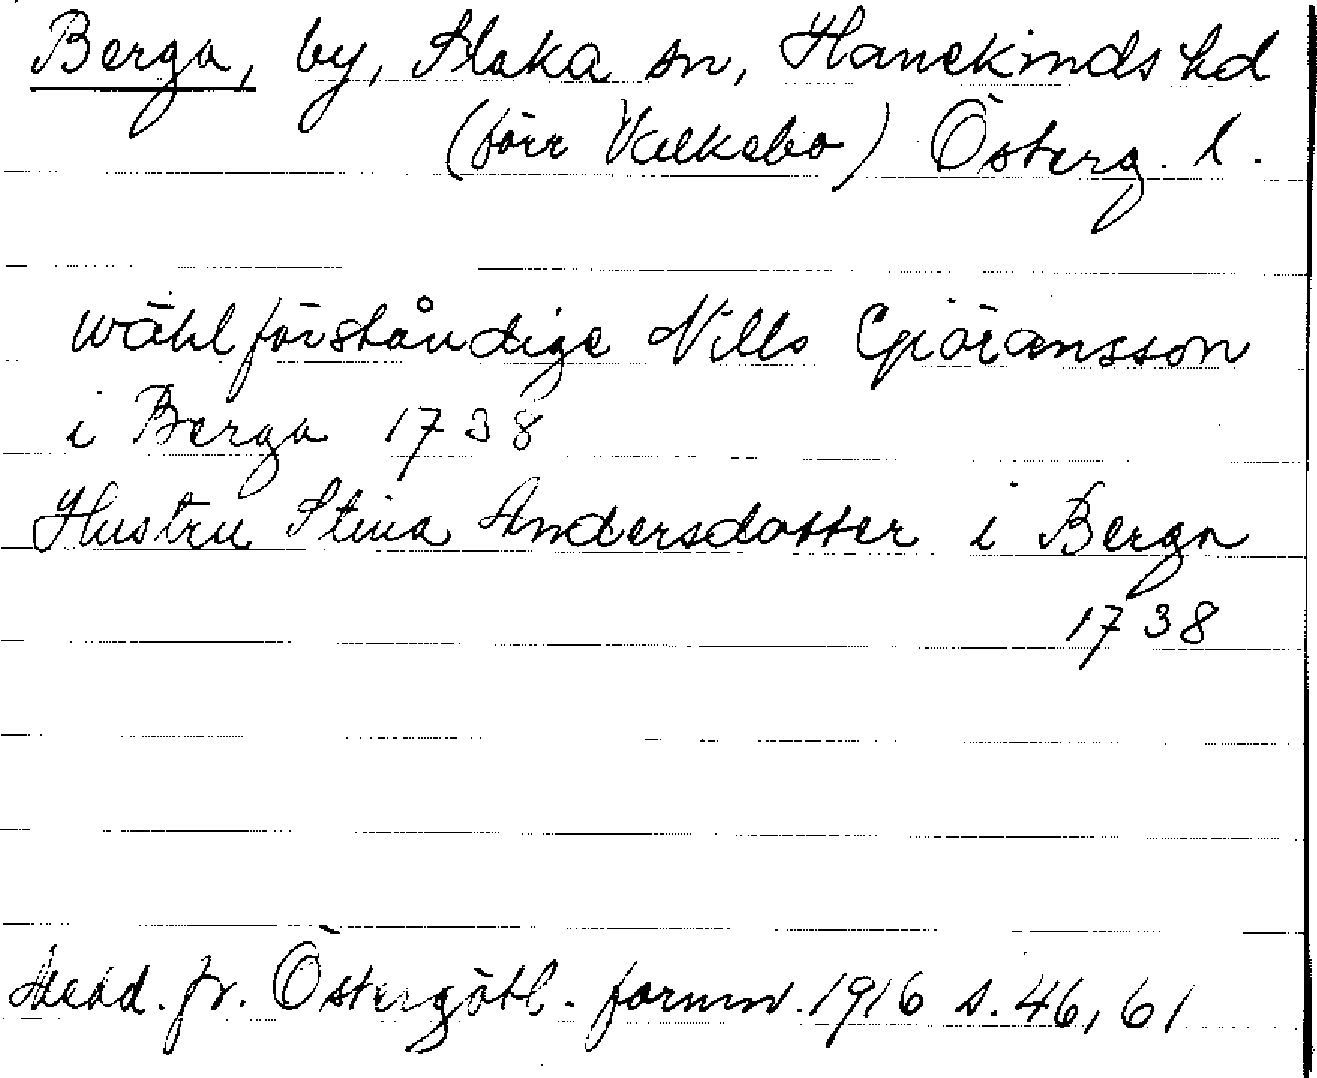 Berga, by, Slaka sn, Hanekinds hd
(förr Valkebo) Österg. l.
wählförståndige Nills Giöransson
i Berga 1738
Hustru Stina Andersdotter i Berga
1738
Medd. fr. Östergötl. fornm. 1916 s. 46, 61